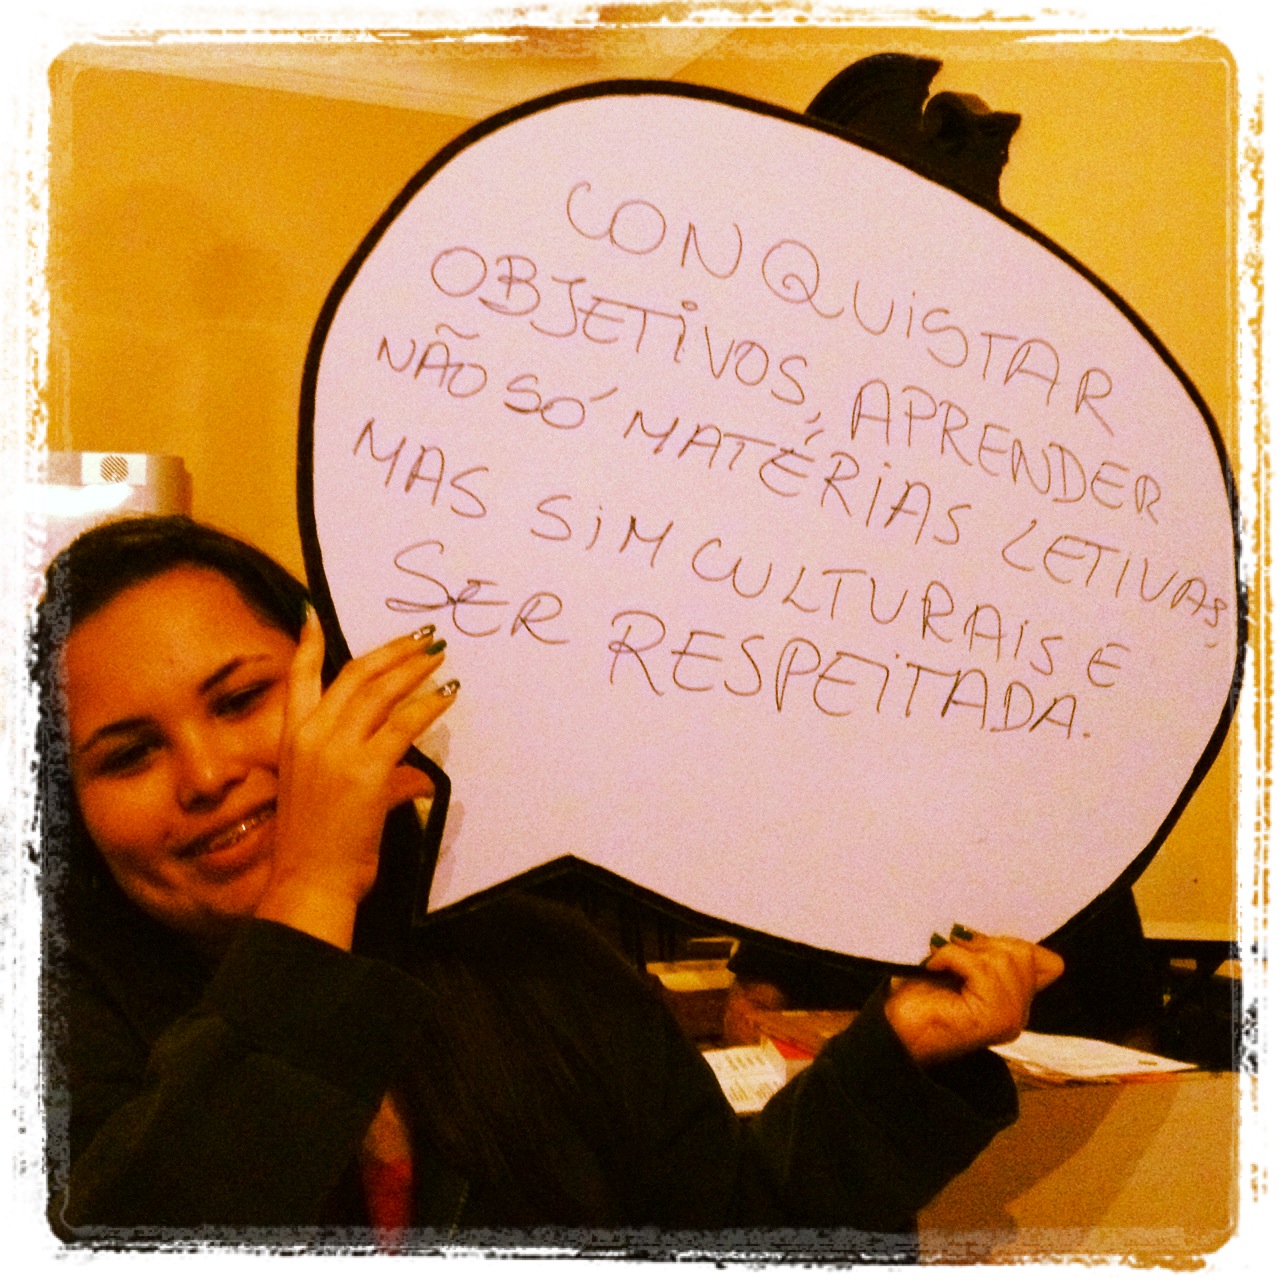 CONQUISTAR
OBJETIVOS, APRENDER
NÃO SÓ MATÉRIAS LETIVAS,
MAS SIM CULTURAIS E
SER RESPEITADA.